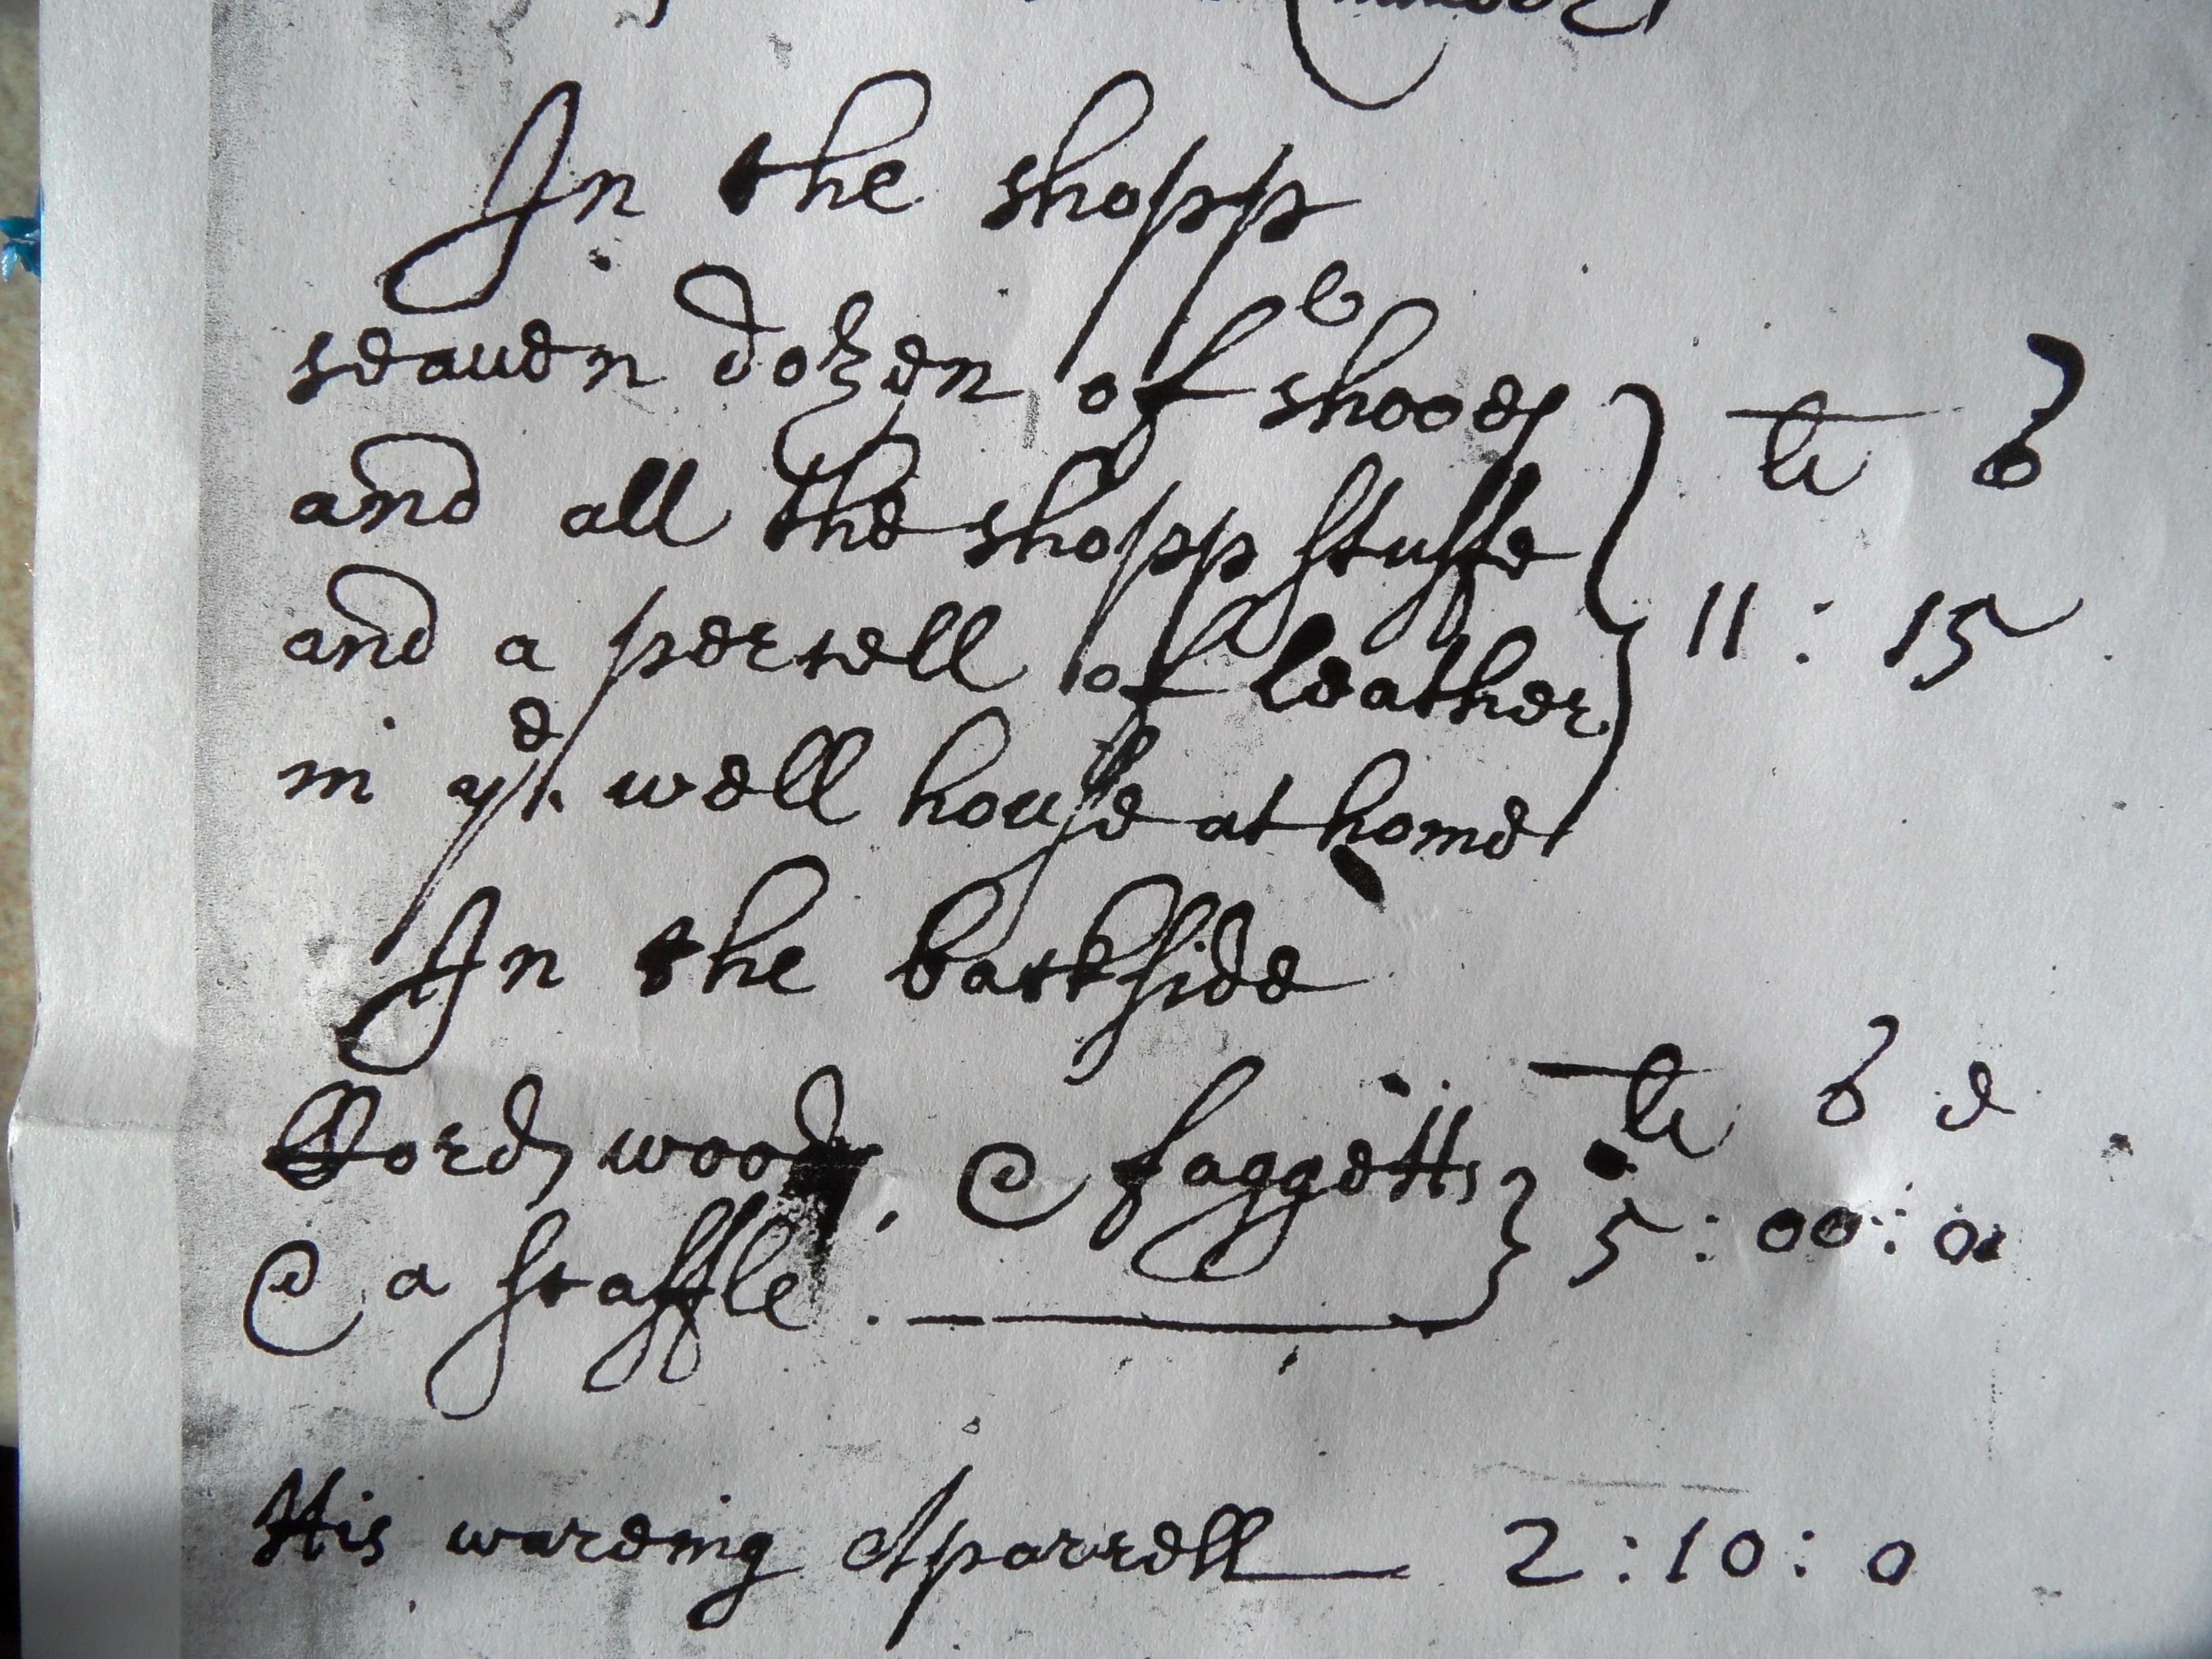 In the shopp
seauen dozen of shooes
and all the shopp stuffe
and a persell of leather
in ye well house at home
li s
11 : 15
In the backside
Bords wood, & faggetts
& a staffle
li s d
5 : 00 : 0
His wareing Aparrell 2 : 10 : 0